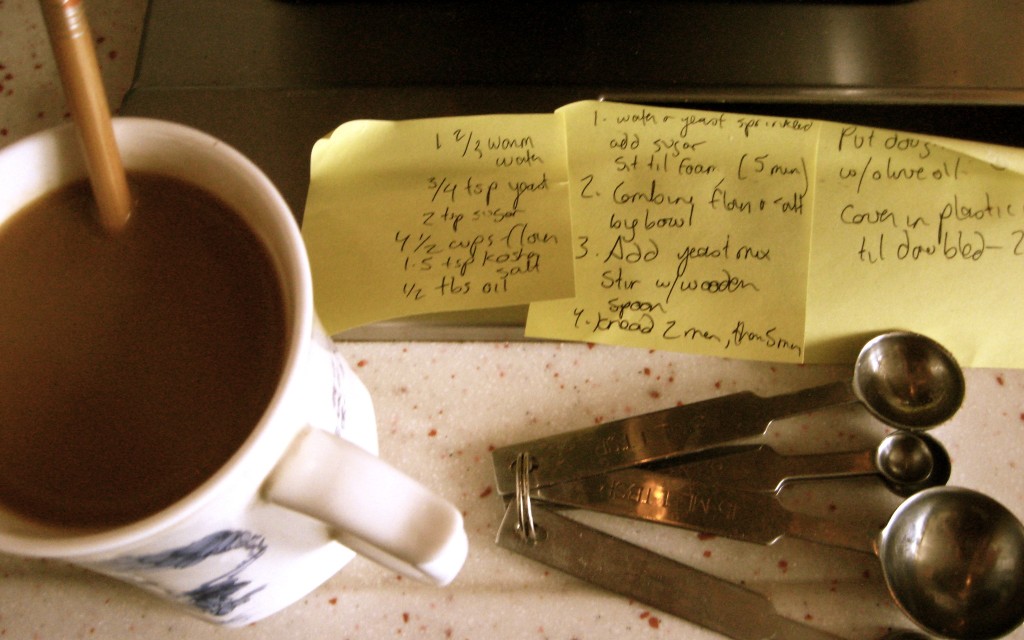 1 2/3 warm
water
3/4 tsp yeast
2 tsp sugar
4 1/2 cups flour
1.5 tsp kosher
salt
1/2 tbs oil
1. water + yeast sprinkled
add sugar
sit til foam (5 min)
2. Combine flour + salt
big bowl
3. Add yeast mix
Stir w/wooden
spoon
4. knead 2 men, then 5 min
Put doug
w/olive oil
Cover in plastic
til doubled - 2
15 ML 1 TBSP